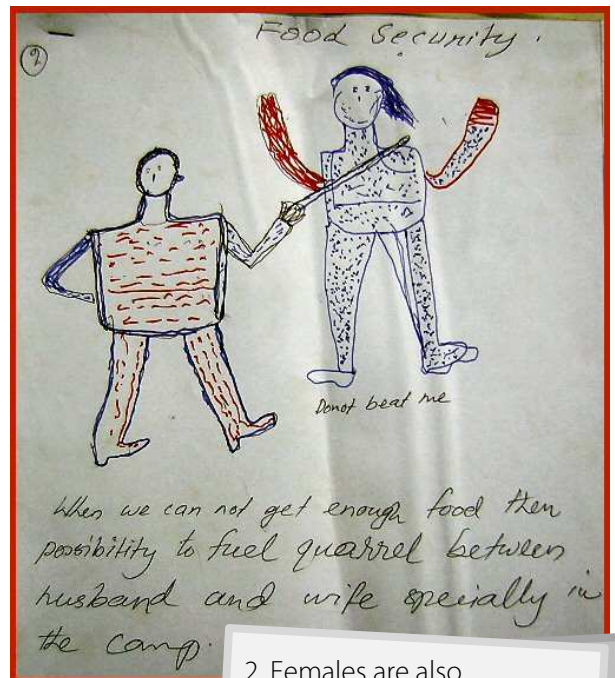 Food Security.
2
Donot beat me
When we can not get enough food then
possibility to fuel quarrel between
husband and wife specially in
the camp.
2. Females are also